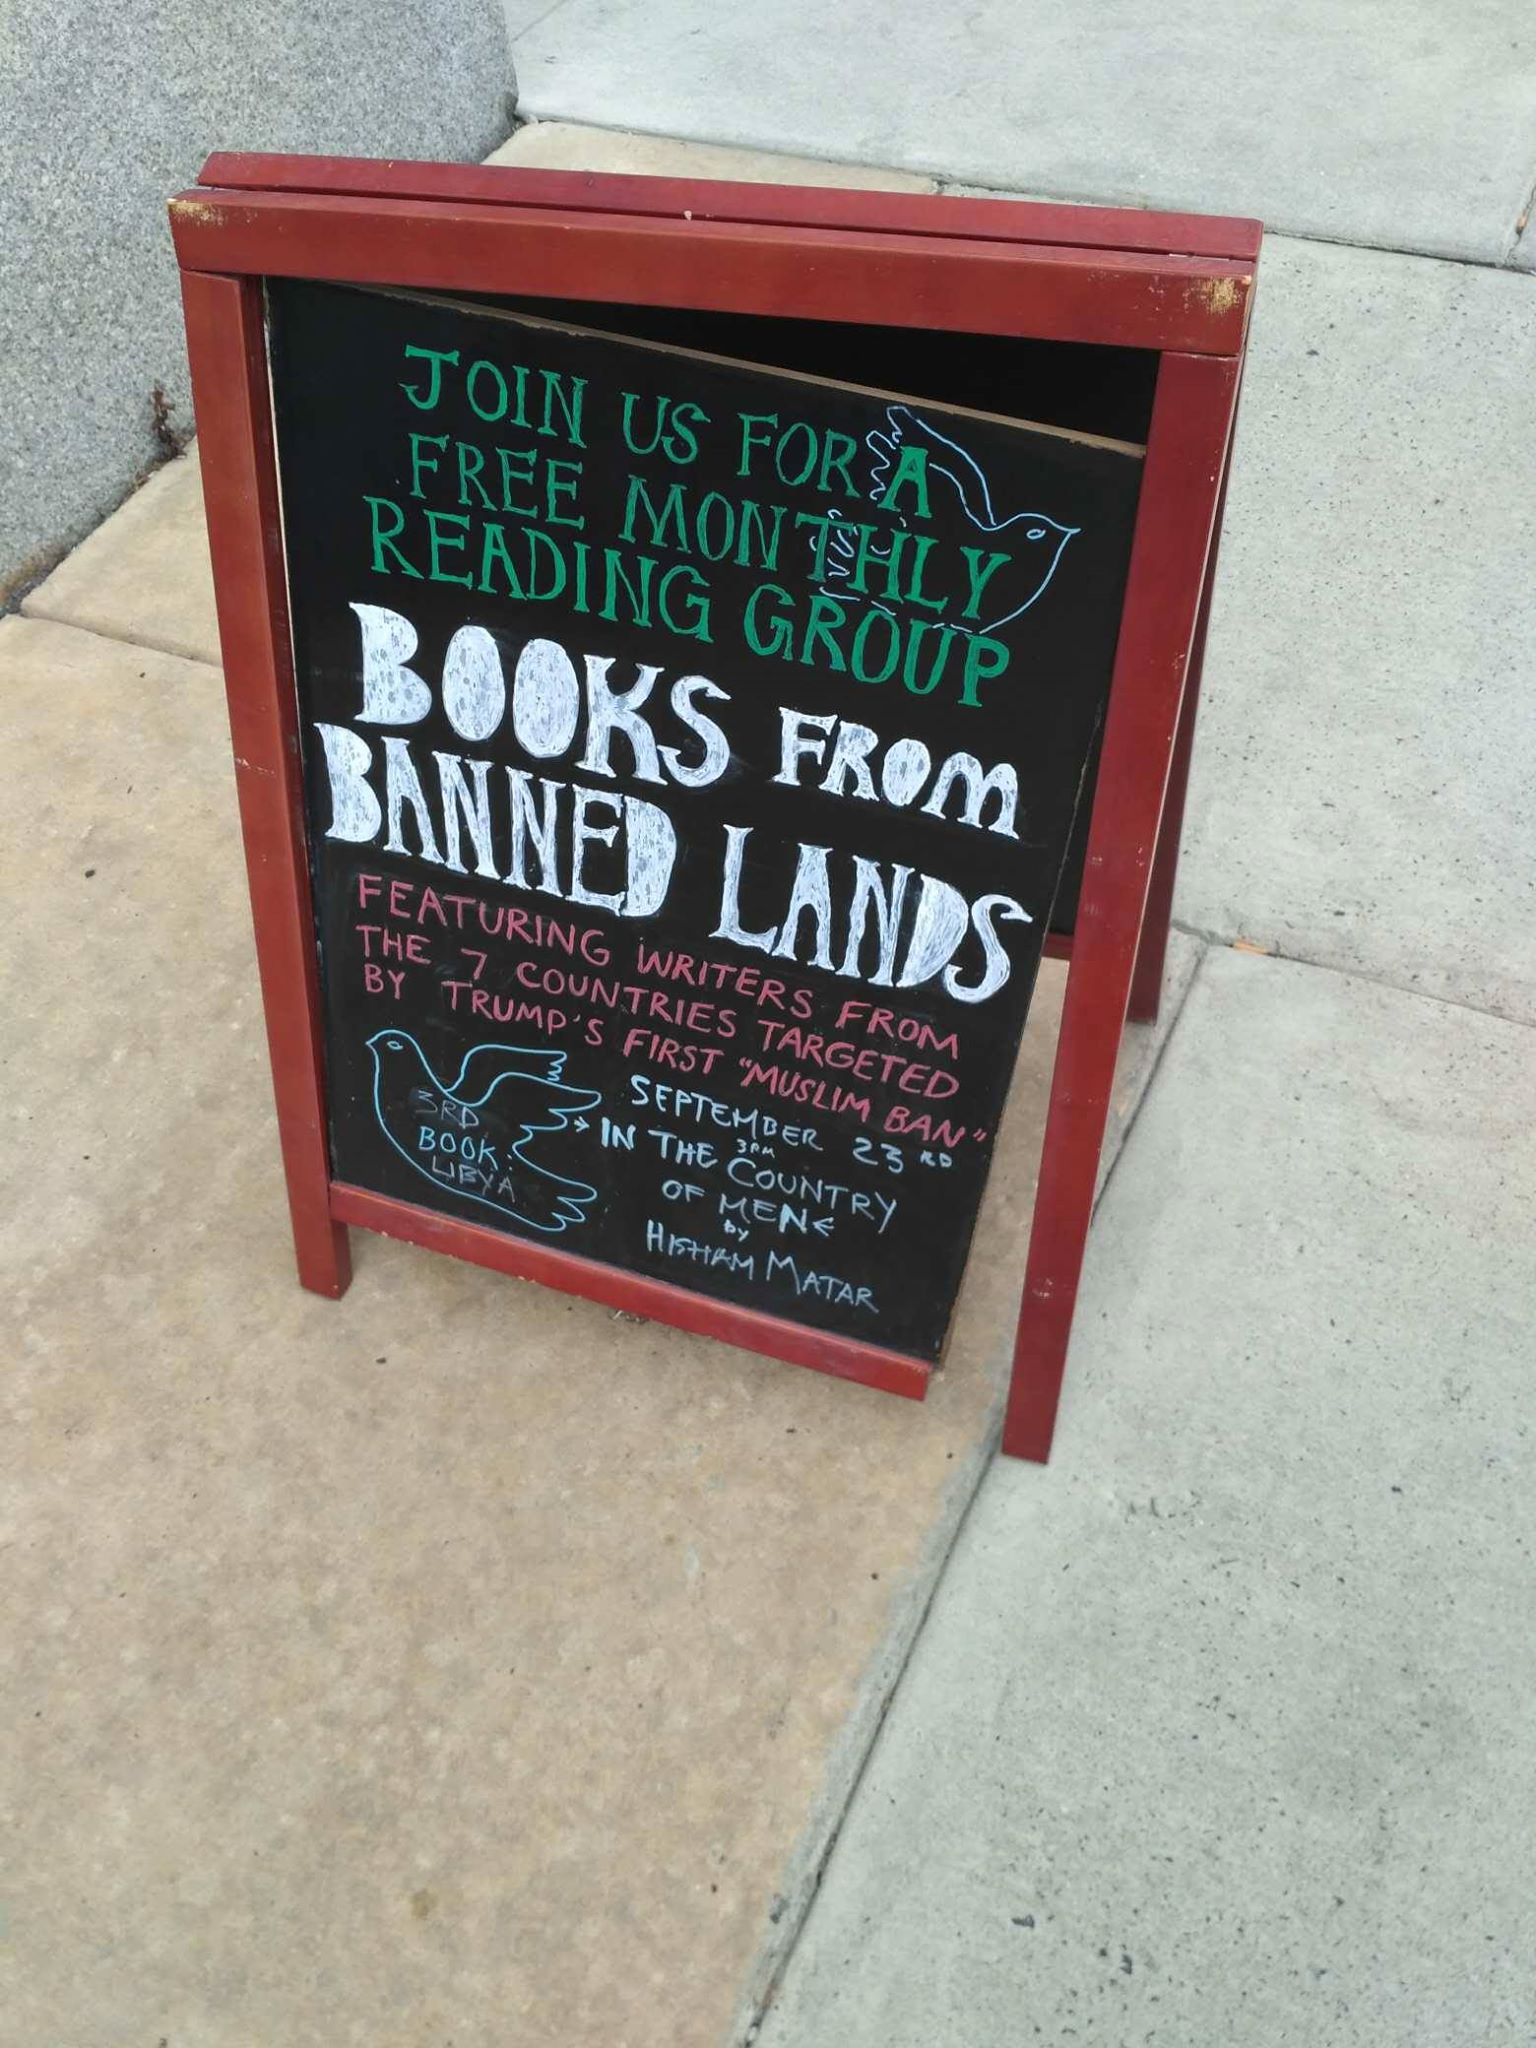 JOIN US FOR A
FREE MONTHLY
READING GROUP
BOOKS FROM
BANNED LANDS
FEATURING WRITERS FROM
THE 7 COUNTRIES TARGETED
BY TRUMP'S FIRST "MUSLIM BAN"
3RD
BOOK:
LIBYA
SEPTEMBER 23RD
3PM
→ IN THE COUNTRY
OF MEN
by
HISHAM MATAR